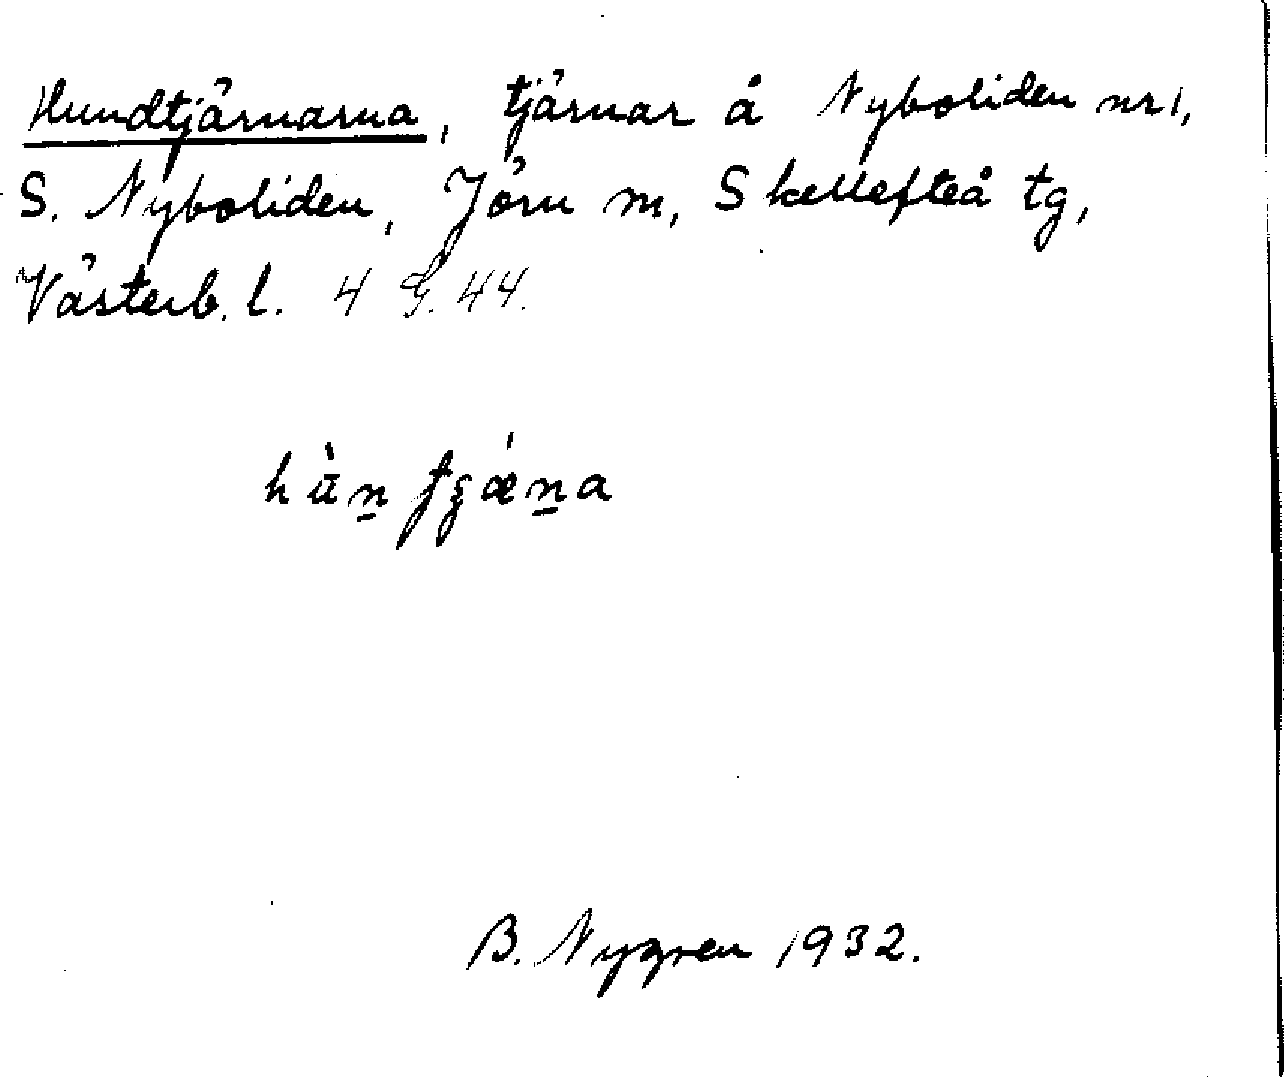 Hundtjärnarna, tjärnar å Nyboliden nr 1,
S. Nyboliden, Jörn m, Skellefteå tg,
Västerb. l. 4 G. 44.
B. Nygren 1932.